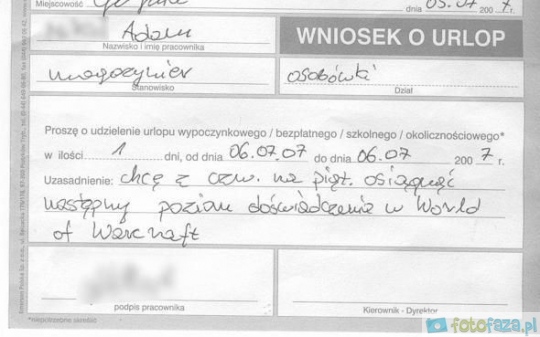 Miejscowość dnia 05.07 2007 r.
Adam
Nazwisko i imię pracownika
WNIOSEK O URLOP
magazynier
Stanowisko
osobówki
Dział
Proszę o udzielenie urlopu wypoczynkowego / bezpłatnego / szkolnego / okolicznościowego*
w ilości 1 dni, od dnia 06.07.07 do dnia 06.07 2007 r.
Uzasadnienie: chcę z czw. na piąt. osiągnąć
następny poziom doświadczenia w World
of Warcraft
podpis pracownika
Kierownik - Dyrektor
*niepotrzebne skreślić
fotofaza.pl